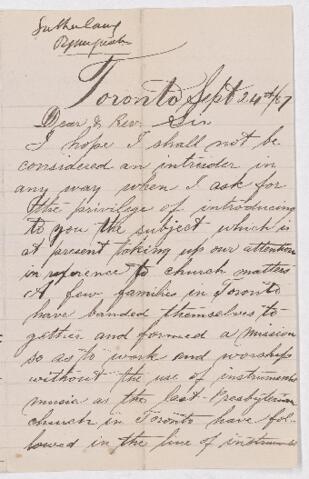 Sutherland
Toronto Sept 24th/67
Dear & Rev. Sir
I hope I shall not be
considered an intruder in
any way when I ask for
the privilege of introducing
to you the subject which is
at present taking up our attention
in reference to church matters
A few families in Toronto
have banded themselves to
gether and formed a mission
so as to work and worship
without the use of instrumental
music as the last Presbyterian
church in Toronto have fol-
lowed in the line of instrumental